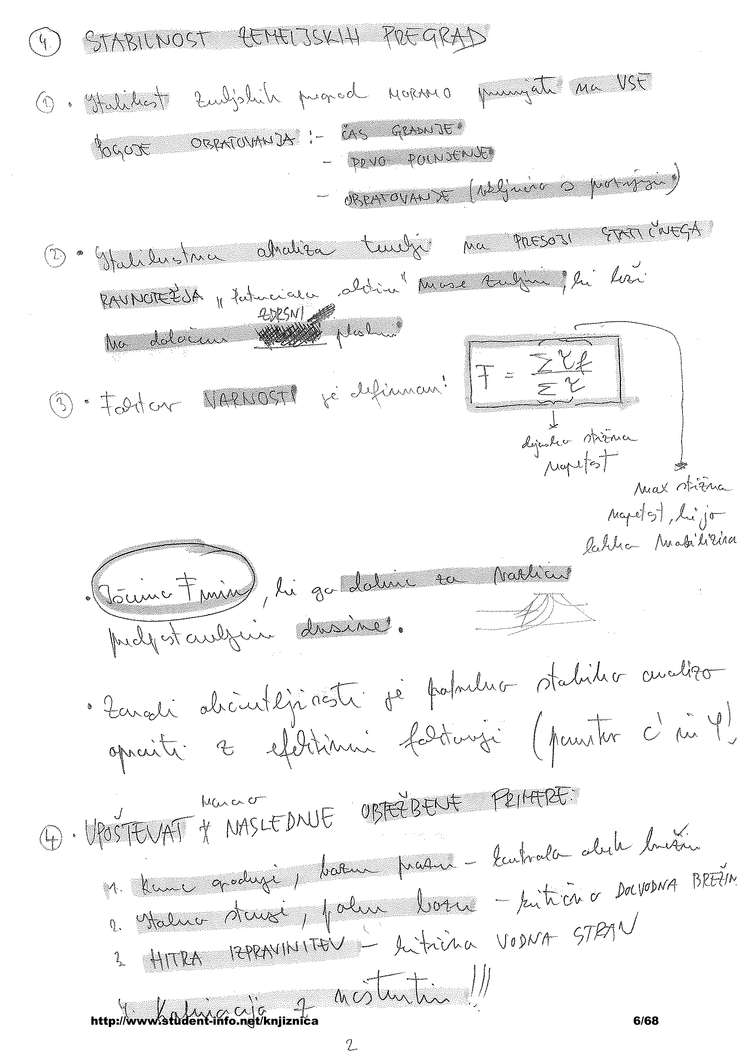 4. STABILNOST ZEMELJSKIH PREGRAD
1 • Stabilnost zemeljskih pregrad MORAMO preverjati na VSE
POGOJE OBRATOVANJA: - ČAS GRADNJE
- PRVO POLNJENJE
- OBRATOVANJE (vključno s potresi)
2 • Stabilnostna analiza temelji na PRESOJI STATIČNEGA
RAVNOTEŽJA "potencialno mase zemljine, ki leži
ZDRSNI
na določeni ploskvi
3 • Faktor VARNOSTI je definiran: F = Σ τf / Σ τ
dejanska strižna
napetost
max strižna
napetost, ki jo
lahko mobilizira
• Iščemo F min, ki ga dobimo za
predpostavljeni drsine.
• Zaradi občutljivosti je potrebno stabilno analizo
opraviti z efektivnimi faktorji (parameter c' in φ')
moramo
4 • UPOŠTEVAT NASLEDNJE OBTEŽBENE PRIMERE:
1. Konec gradnje, bazen prazen - kontrola obeh brežin
2. Stalno stanje, poln bazen - kritična DOLVODNA BREŽINA
3. HITRA IZPRAZNITEV - kritična VODNA STRAN
4. Kombinacija z !!!
http://www.student-info.net/knjiznica
6/68
2